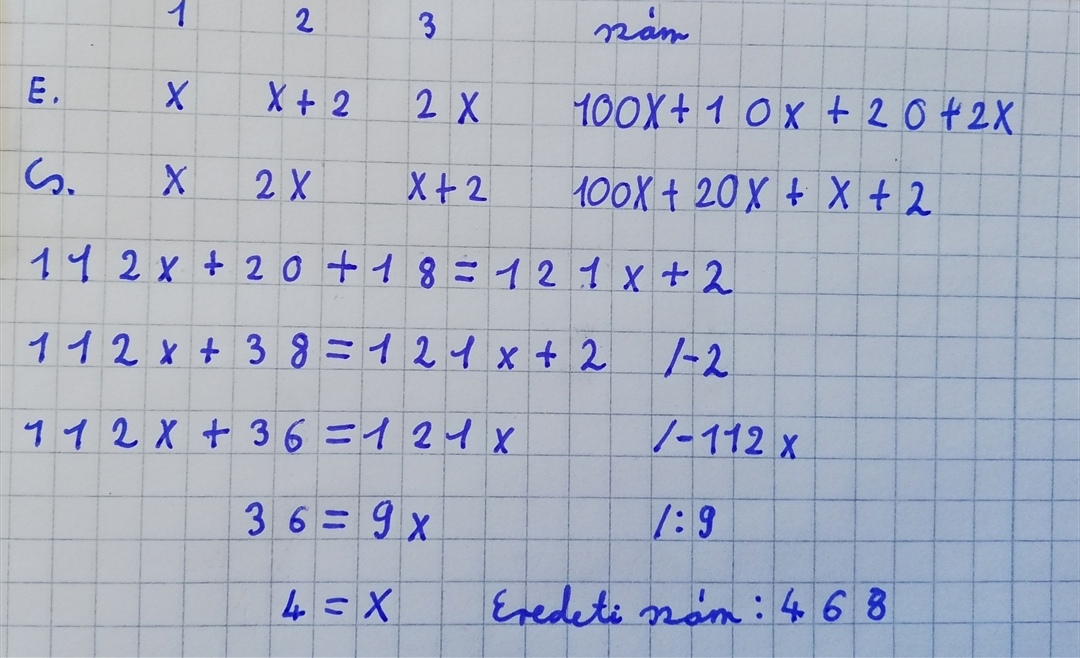 1 2 3 szám
E. x x+2 2x 100x+10x+20+2x
Cs. x 2x x+2 100x+20x+x+2
112x+20+18=121x+2
112x+38=121x+2 /-2
112x+36=121x /-112x
36=9x /:9
4=x Eredeti szám: 468